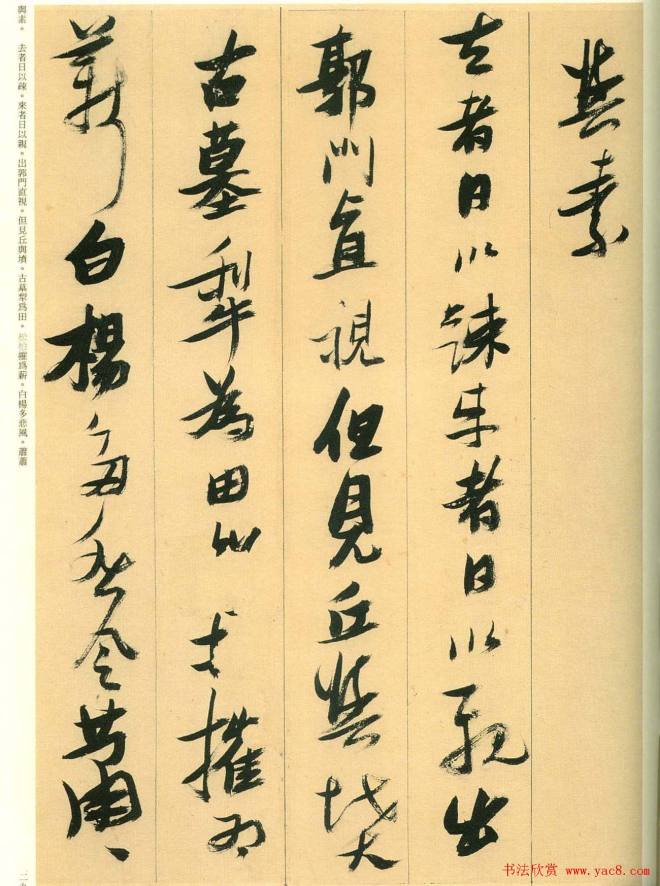 與素
去者日以疎来者日以親出
郭門直視但見丘與墳
古墓犁為田摧為
薪白楊多悲風蕭〻
與素。去者日以疎。來者日以親。出郭門直視。但見丘與墳。古墓犁爲田。松柏摧爲薪。白楊多悲風。蕭蕭
书法欣赏 www.yac8.com